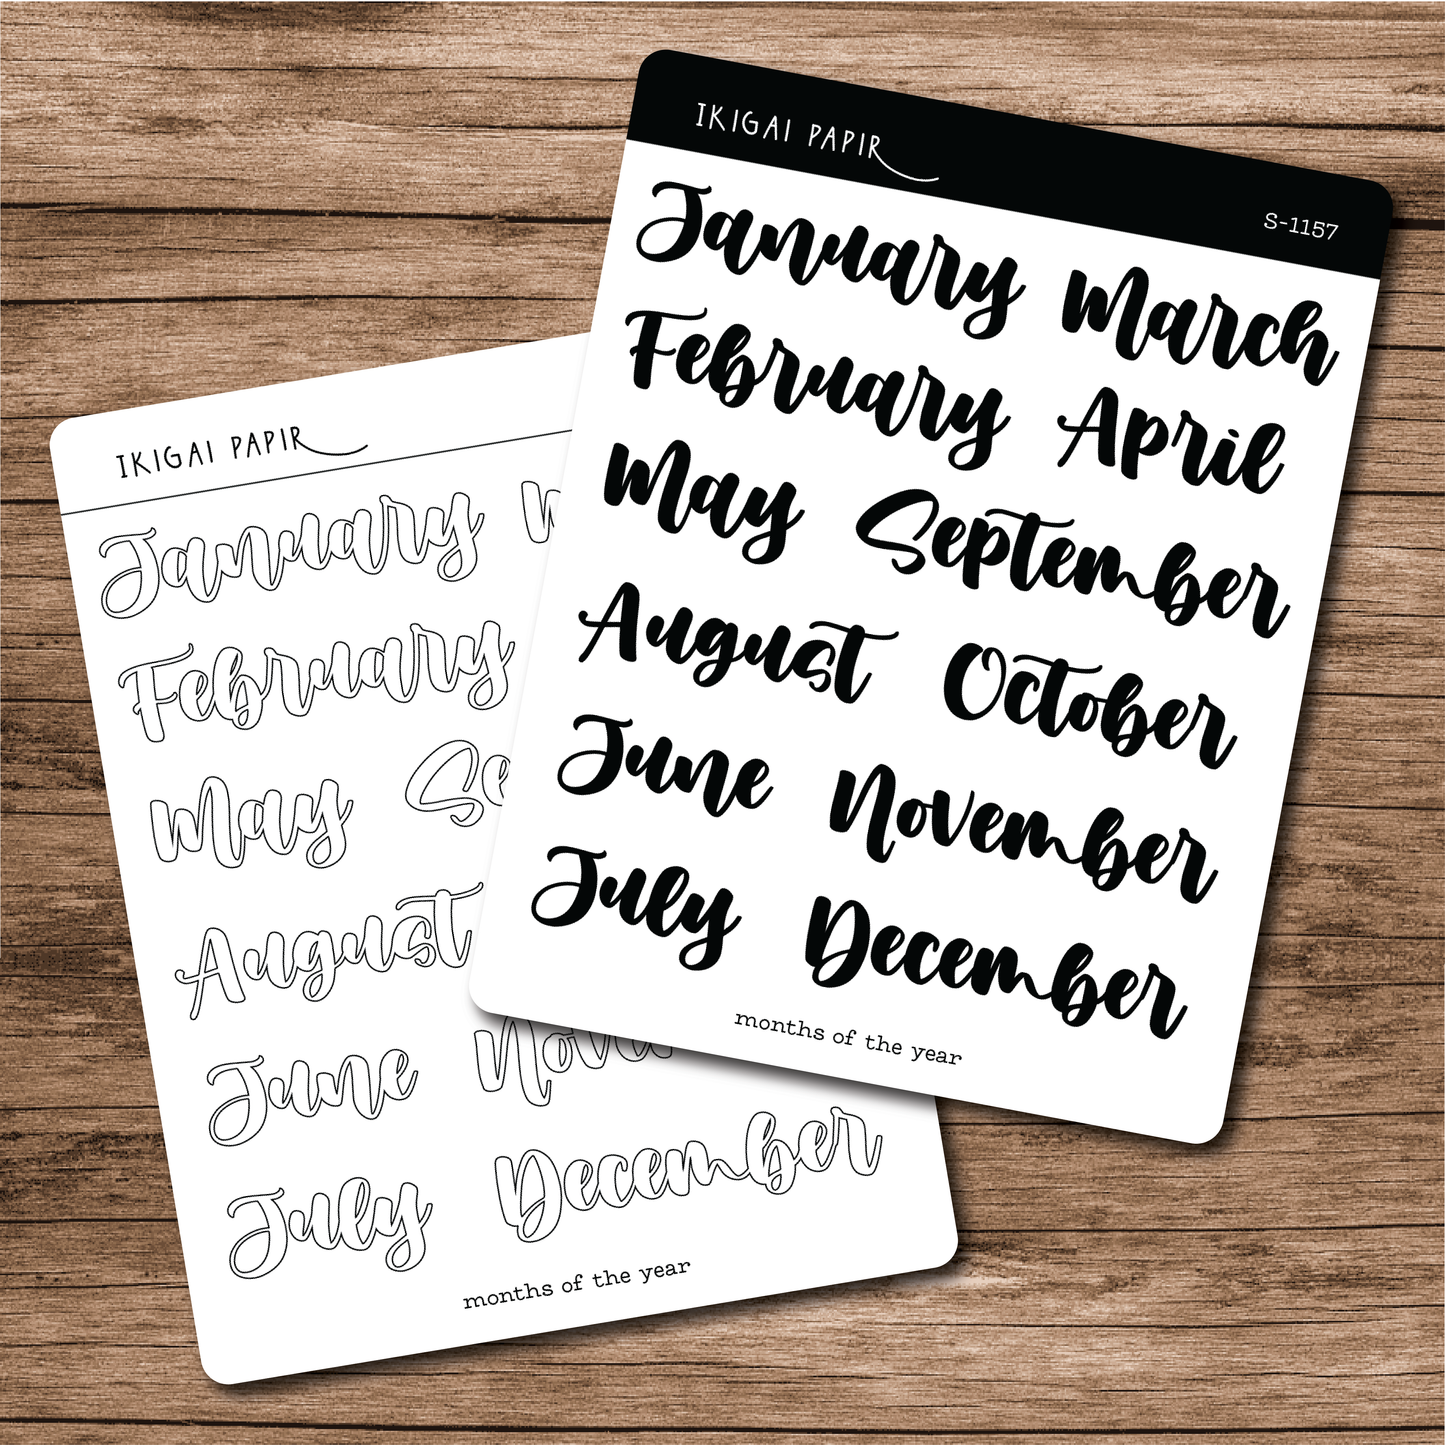 IKIGAI PAPIR
S-1157
January March
February April
May September
August October
June November
July December
months of the year
IKIGAI PAPIR
January
February
May
August
June
July December
months of the year